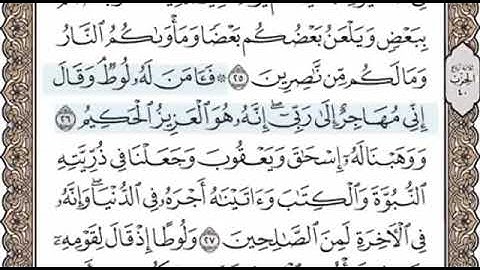 بِبَعْضٍ وَيَلْعَنُ بَعْضُكُم بَعْضًا وَمَأْوَىٰكُمُ ٱلنَّارُ
وَمَا لَكُم مِّن نَّٰصِرِينَ ٢٥ ۞ فَـَٔامَنَ لَهُۥ لُوطٌ وَقَالَ
إِنِّى مُهَاجِرٌ إِلَىٰ رَبِّىٓ ۖ إِنَّهُۥ هُوَ ٱلْعَزِيزُ ٱلْحَكِيمُ ٢٦
وَوَهَبْنَا لَهُۥٓ إِسْحَٰقَ وَيَعْقُوبَ وَجَعَلْنَا فِى ذُرِّيَّتِهِ
ٱلنُّبُوَّةَ وَٱلْكِتَٰبَ وَءَاتَيْنَٰهُ أَجْرَهُۥ فِى ٱلدُّنْيَا ۖ وَإِنَّهُۥ
فِى ٱلْءَاخِرَةِ لَمِنَ ٱلصَّٰلِحِينَ ٢٧ وَلُوطًا إِذْ قَالَ لِقَوْمِهِۦٓ